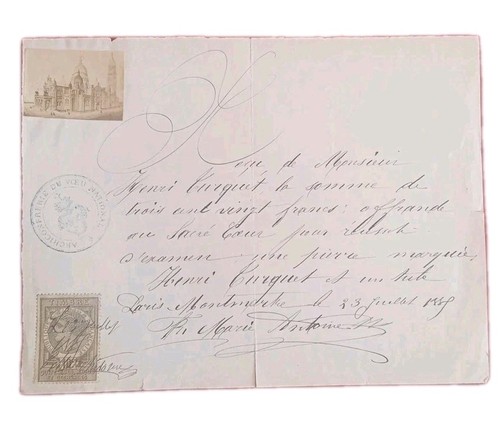 Reçu de Monsieur
Henri Curquet la somme de
trois cent vingt francs: offrande
au Sacré Cœur pour réussite
d'examen une pierre marquée.
Henri Curquet et un
Paris Montmartre le 23 Juillet 1889
Marie Antoine
ARCHICONFRÉRIE DU VŒU NATIONAL